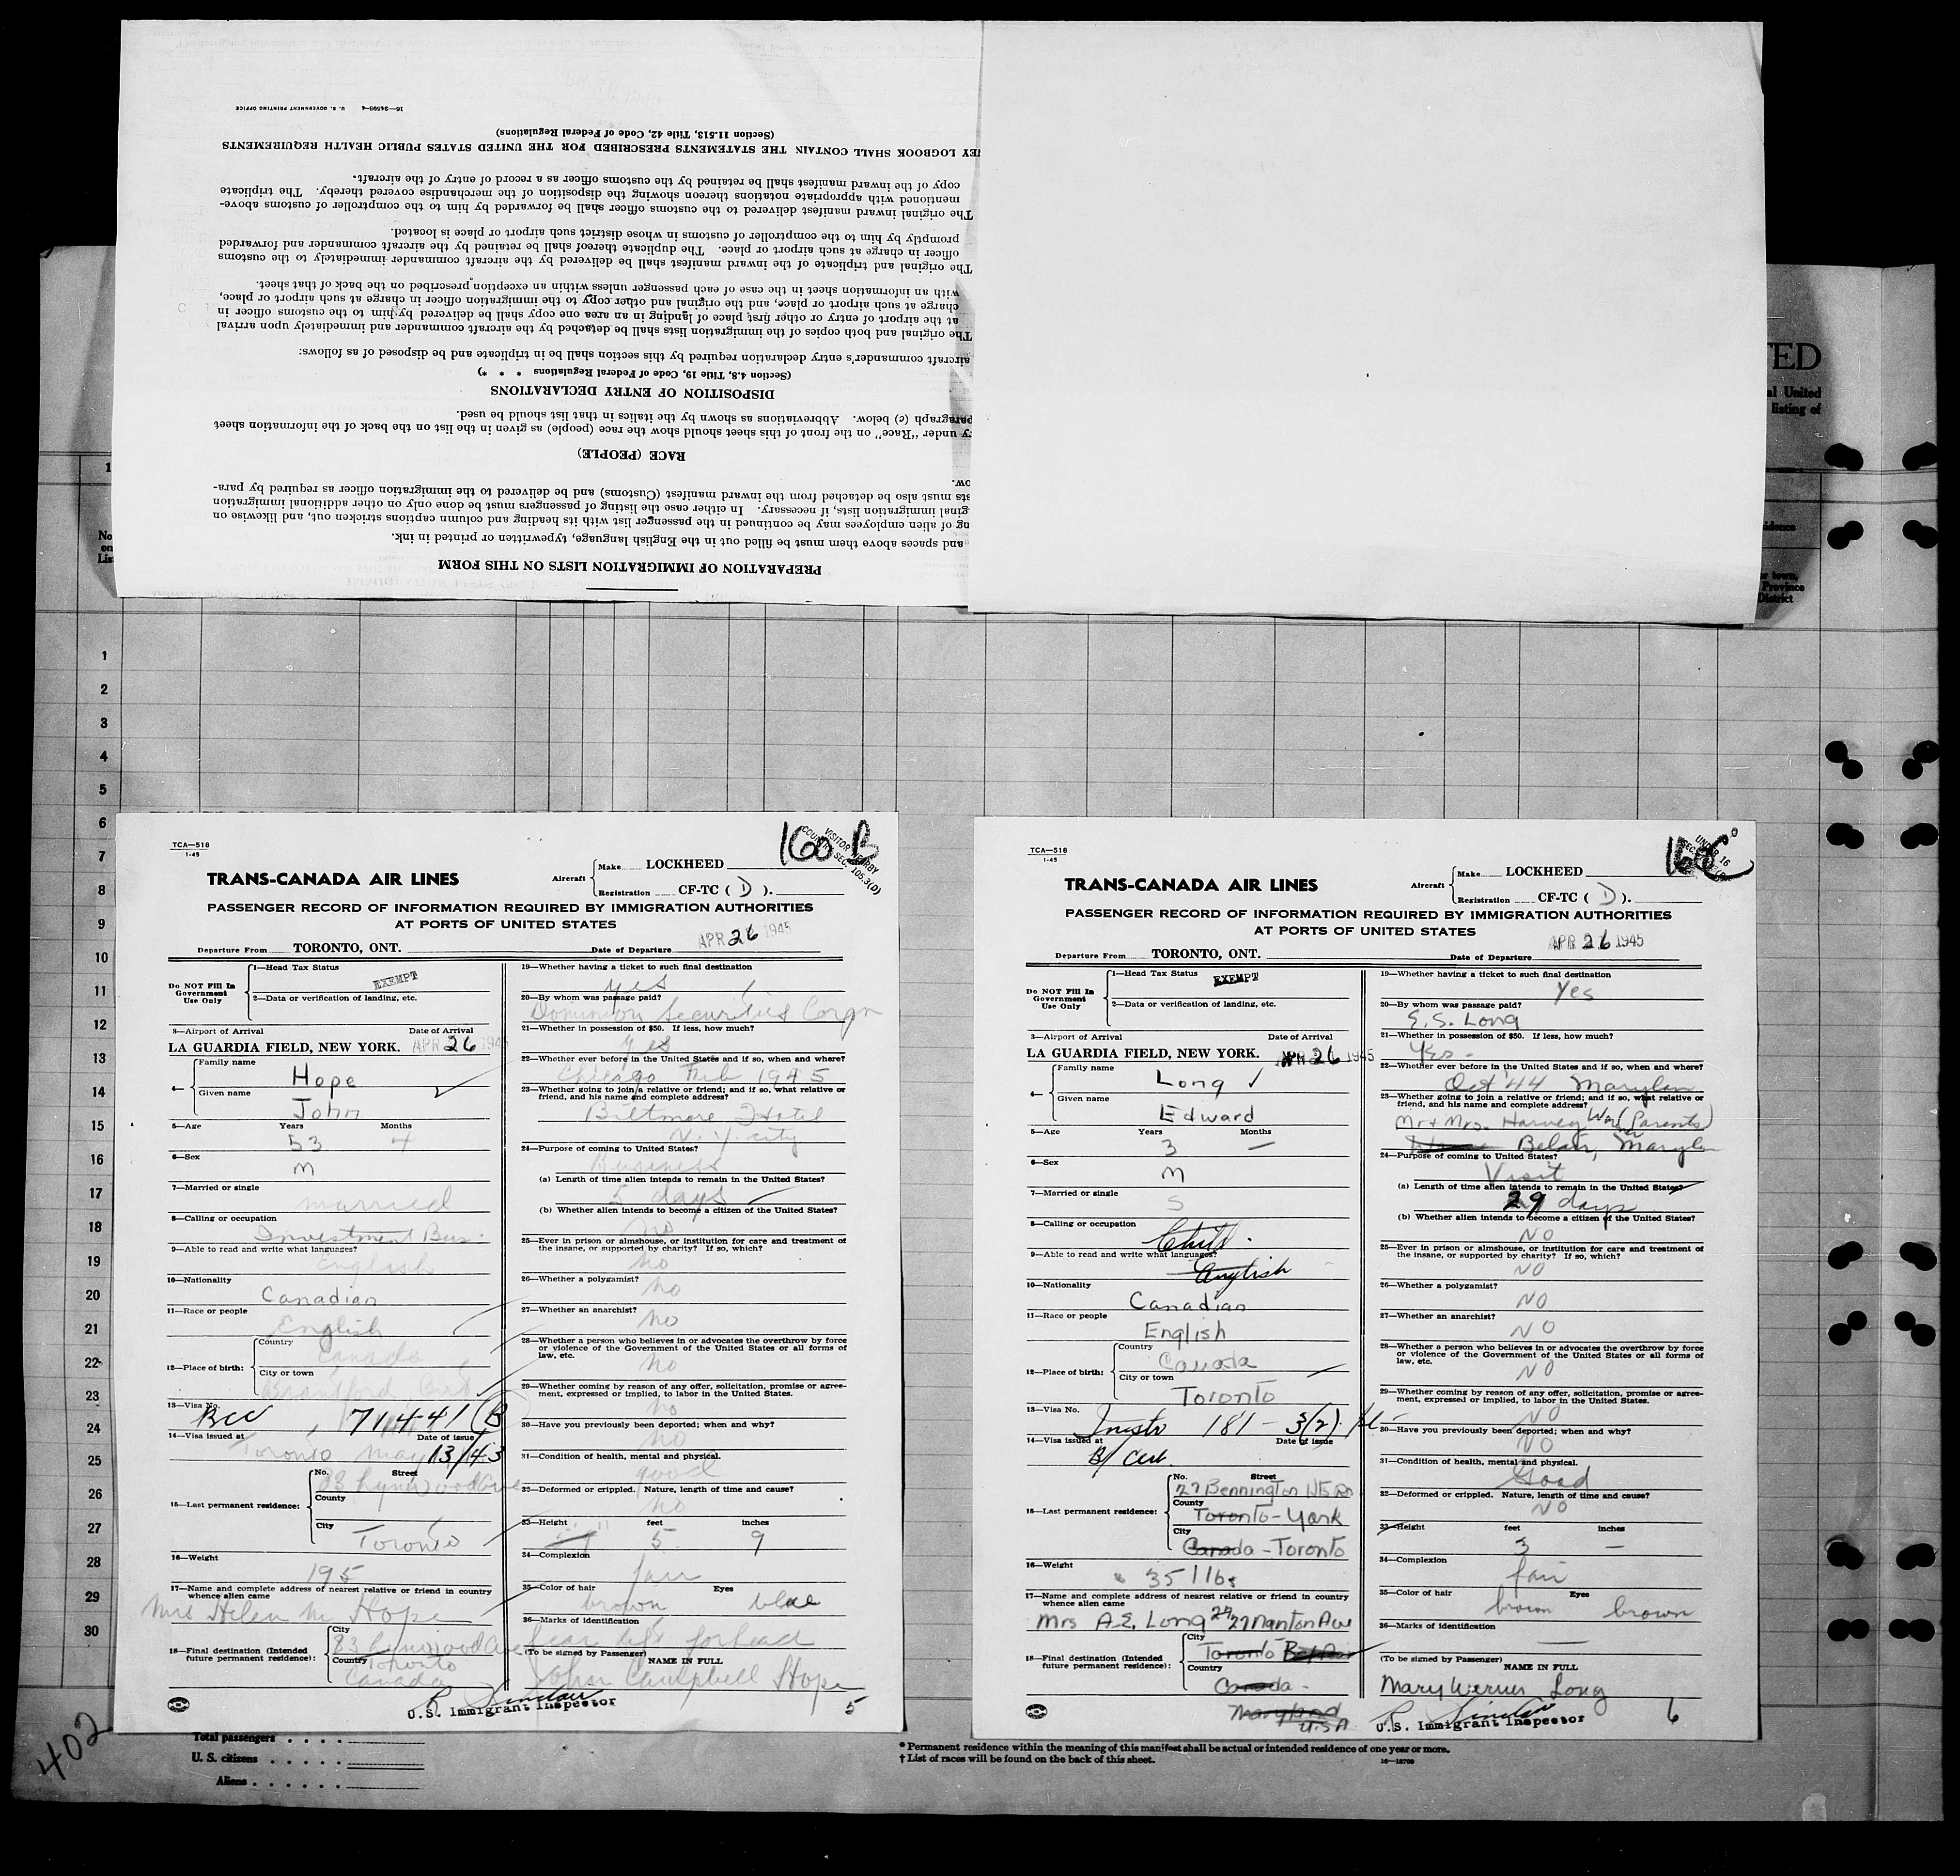 16—24598-4 U. S. GOVERNMENT PRINTING OFFICE
(Section 11.513, Title 42, Code of Federal Regulations)
EY LOGBOOK SHALL CONTAIN THE STATEMENTS PRESCRIBED FOR THE UNITED STATES PUBLIC HEALTH REQUIREMENTS
copy of the inward manifest shall be retained by the customs officer as a record of entry of the aircraft.
mentioned with appropriate notations thereon showing the disposition of the merchandise covered thereby. The triplicate
The original inward manifest delivered to the customs officer shall be forwarded by him to the comptroller of customs above-
promptly by him to the comptroller of customs in whose district such airport or place is located.
officer in charge at such airport or place. The duplicate thereof shall be retained by the aircraft commander and forwarded
The original and triplicate of the inward manifest shall be delivered by the aircraft commander immediately to the customs
with an information sheet in the case of each passenger unless within an exception prescribed on the back of that sheet.
charge at such airport or place, and the original and other copy to the immigration officer in charge at such airport or place,
at the airport of entry or other first place of landing in an area one copy shall be delivered by him to the customs officer in
The original and both copies of the immigration lists shall be detached by the aircraft commander and immediately upon arrival
aircraft commander's entry declaration required by this section shall be in triplicate and be disposed of as follows:
(Section 4.8, Title 19, Code of Federal Regulations * * *)
DISPOSITION OF ENTRY DECLARATIONS
paragraph (c) below. Abbreviations as shown by the italics in that list should be used.
ry under "Race" on the front of this sheet should show the race (people) as given in the list on the back of the information sheet
RACE (PEOPLE)
ow.
sts must also be detached from the inward manifest (Customs) and be delivered to the immigration officer as required by para-
ginal immigration lists, if necessary. In either case the listing of passengers must be done only on other additional immigration
ng of alien employees may be continued in the passenger list with its heading and column captions stricken out, and likewise on
and spaces above them must be filled out in the English language, typewritten or printed in ink.
PREPARATION OF IMMIGRATION LISTS ON THIS FORM
TED
al United
listing of
1
No
on
Lis
idence
r town,
Province
District
1
2
3
4
5
6
7
8
9
10
11
12
13
14
15
16
17
18
19
20
21
22
23
24
25
26
27
28
29
30
TCA—518
1-45
160 B
VISITOR NEARBY
COUNTRY SEC. 105.3(D)
TRANS-CANADA AIR LINES
Aircraft Make LOCKHEED
Registration CF-TC ( D ).
PASSENGER RECORD OF INFORMATION REQUIRED BY IMMIGRATION AUTHORITIES
AT PORTS OF UNITED STATES
Departure From TORONTO, ONT. Date of Departure APR 26 1945
Do NOT Fill In Government Use Only
1—Head Tax Status EXEMPT
2—Data or verification of landing, etc.
3—Airport of Arrival Date of Arrival
LA GUARDIA FIELD, NEW YORK. APR 26 1945
4— Family name Hope
Given name John
5—Age Years 53 Months 4
6—Sex M
7—Married or single married
8—Calling or occupation Investment Bus.
9—Able to read and write what languages? English
10—Nationality Canadian
11—Race or people English
12—Place of birth: Country Canada
City or town Brantford, Ont
13—Visa No. BCC 714441 (B
14—Visa issued at Date of issue
Toronto May 13/43
15—Last permanent residence: No. Street 83 Lynwood Ave
County
City Toronto
16—Weight 195
17—Name and complete address of nearest relative or friend in country
whence alien came
Mrs Helen M. Hope
18—Final destination (Intended future permanent residence): City 83 Lynwood Ave
Country Toronto
Canada
19—Whether having a ticket to such final destination
yes
20—By whom was passage paid?
Dominion Securities Corpn
21—Whether in possession of $50. If less, how much?
yes
22—Whether ever before in the United States and if so, when and where?
Chicago Feb 1945
23—Whether going to join a relative or friend; and if so, what relative or
friend, and his name and complete address?
Biltmore Hotel
N. Y. city
24—Purpose of coming to United States?
Business
(a) Length of time alien intends to remain in the United States?
5 days
(b) Whether alien intends to become a citizen of the United States?
No
25—Ever in prison or almshouse, or institution for care and treatment of
the insane, or supported by charity? If so, which?
No
26—Whether a polygamist? No
27—Whether an anarchist? No
28—Whether a person who believes in or advocates the overthrow by force
or violence of the Government of the United States or all forms of
law, etc. No
29—Whether coming by reason of any offer, solicitation, promise or agree-
ment, expressed or implied, to labor in the United States.
No
30—Have you previously been deported; when and why?
No
31—Condition of health, mental and physical.
good
32—Deformed or crippled. Nature, length of time and cause?
No
33—Height feet 5 inches 9
34—Complexion fair
35—Color of hair brown Eyes blue
36—Marks of identification
scar left forhead
(To be signed by Passenger) NAME IN FULL
John Campbell Hope
R. Sinclair
U.S. Immigrant Inspector
5
TCA—518
1-45
160 C
UNDER 16
TRANS-CANADA AIR LINES
Aircraft Make LOCKHEED
Registration CF-TC ( D ).
PASSENGER RECORD OF INFORMATION REQUIRED BY IMMIGRATION AUTHORITIES
AT PORTS OF UNITED STATES
Departure From TORONTO, ONT. Date of Departure APR 26 1945
Do NOT Fill In Government Use Only
1—Head Tax Status EXEMPT
2—Data or verification of landing, etc.
3—Airport of Arrival Date of Arrival
LA GUARDIA FIELD, NEW YORK. APR 26 1945
4— Family name Long
Given name Edward
5—Age Years 3 Months —
6—Sex M
7—Married or single S
8—Calling or occupation Child
9—Able to read and write what languages? English
10—Nationality Canadian
11—Race or people English
12—Place of birth: Country Canada
City or town Toronto
13—Visa No. 181 - 3(2)
14—Visa issued at Date of issue
B/ Cert
15—Last permanent residence: No. Street 27 Bennington Hts Rd
County Toronto - York
City Canada - Toronto
16—Weight 35 lbs
17—Name and complete address of nearest relative or friend in country
whence alien came
Mrs A.E. Long 27 Nanton Ave
18—Final destination (Intended future permanent residence): City Toronto
Country Canada -
Maryland
U.S.A
19—Whether having a ticket to such final destination
Yes
20—By whom was passage paid?
E.S. Long
21—Whether in possession of $50. If less, how much?
Yes -
22—Whether ever before in the United States and if so, when and where?
Oct '44 Marylan
23—Whether going to join a relative or friend; and if so, what relative or
friend, and his name and complete address?
Mr + Mrs. Harvey (Parents)
Belair, Marylan
24—Purpose of coming to United States?
Visit
(a) Length of time alien intends to remain in the United States?
29 days
(b) Whether alien intends to become a citizen of the United States?
NO
25—Ever in prison or almshouse, or institution for care and treatment of
the insane, or supported by charity? If so, which?
NO
26—Whether a polygamist? NO
27—Whether an anarchist? NO
28—Whether a person who believes in or advocates the overthrow by force
or violence of the Government of the United States or all forms of
law, etc. NO
29—Whether coming by reason of any offer, solicitation, promise or agree-
ment, expressed or implied, to labor in the United States.
NO
30—Have you previously been deported; when and why?
NO
31—Condition of health, mental and physical.
Good
32—Deformed or crippled. Nature, length of time and cause?
NO
33—Height feet 3 inches —
34—Complexion fair
35—Color of hair brown Eyes brown
36—Marks of identification —
(To be signed by Passenger) NAME IN FULL
Mary Werner Long
R. Sinclair
U.S. Immigrant Inspector
6
402
Total passengers
U. S. citizens
Aliens
* Permanent residence within the meaning of this manifest shall be actual or intended residence of one year or more.
† List of races will be found on the back of this sheet.